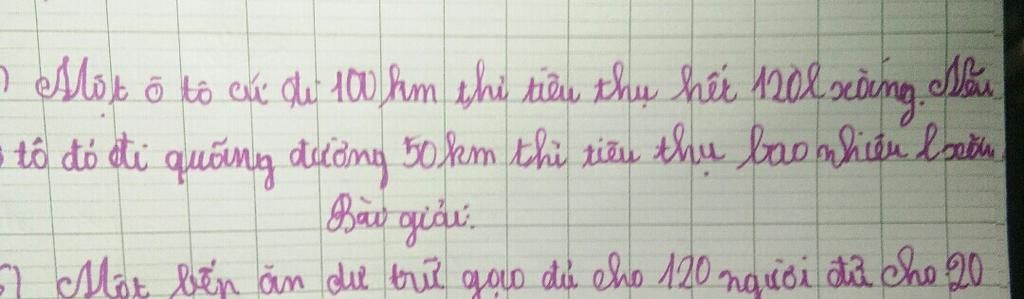 ) Một ô tô cứ đi 100km thì tiêu thụ hết 120l xăng. Nếu
tô đó đi quãng đường 50km thì tiêu thụ bao nhiêu l xăn
Bài giải:
) Một bếp ăn dự trữ gạo đủ cho 120 người đủ cho 20